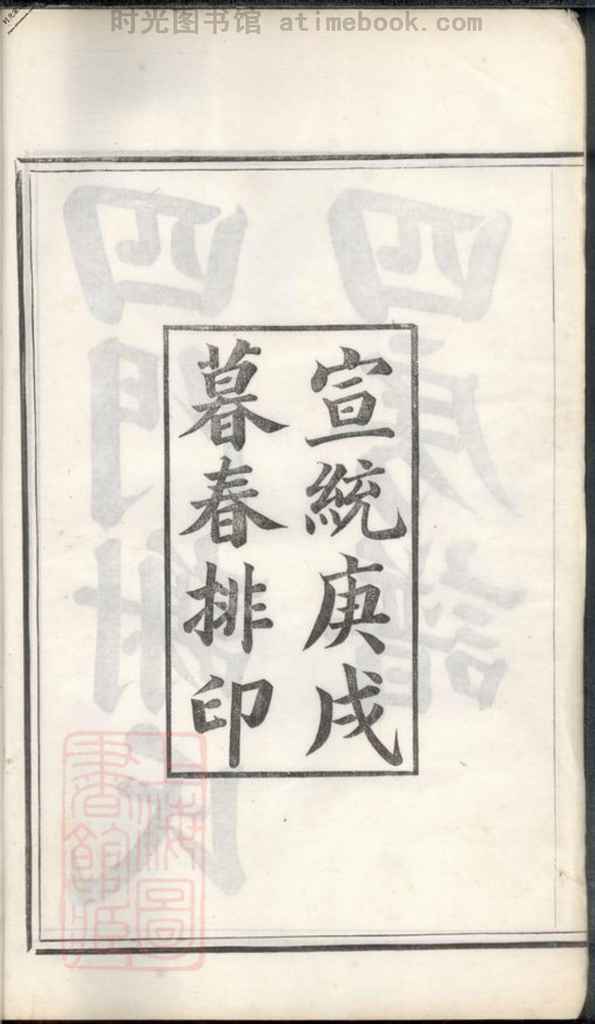 时光图书馆 atimebook.com
宣統庚戌
暮春排印